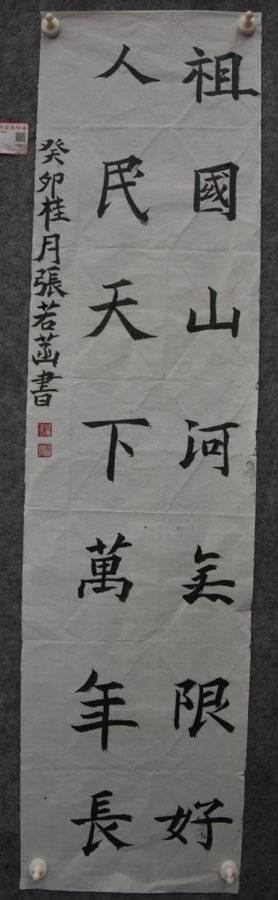 祖國山河无限好
人民天下萬年長
癸卯桂月張若菡書